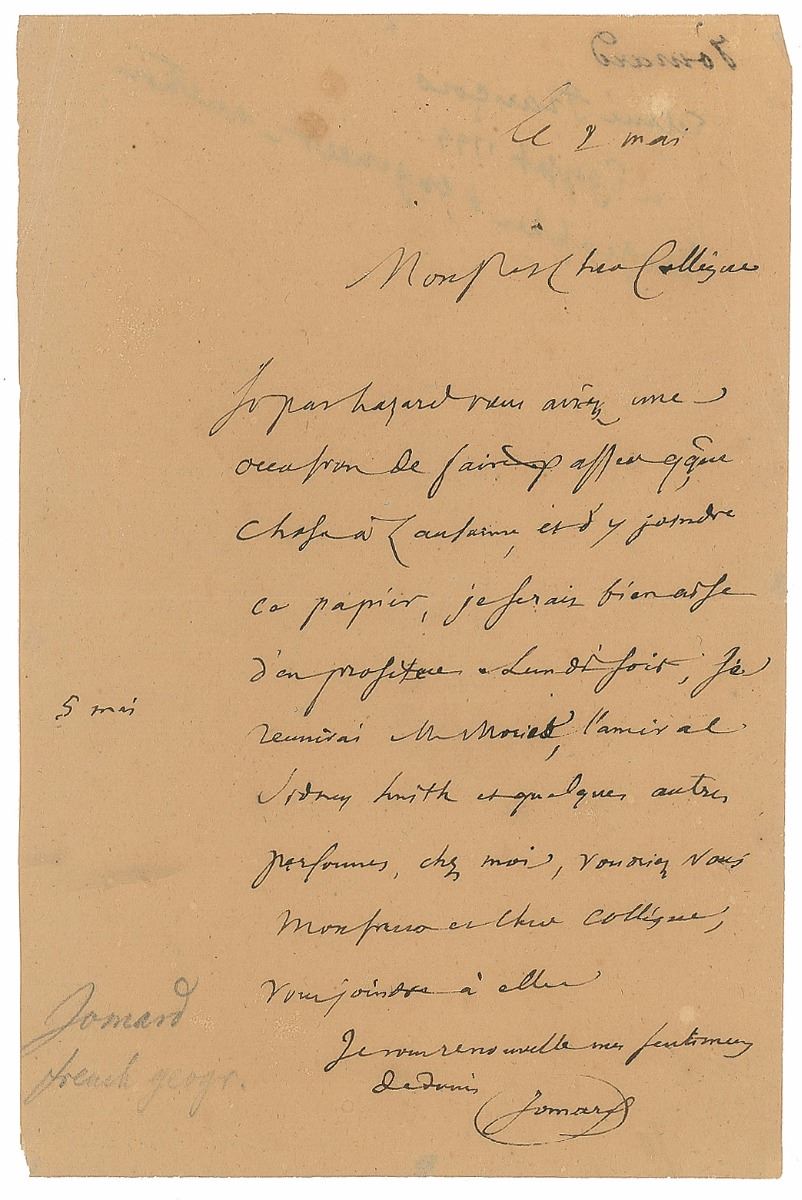 Jomard
le 2 mai
Monsieur et Cher Collègue
Si par hazard vous aviez une
occasion de faire passer qque
chose à Lausanne, et d'y joindre
ce papier, je serais bien aise
d'en profiter Lundi soir, je
reunirai M l'amiral
Sidney Smith et quelques autres
5 mai
personnes, chez moi, voudriez vous
Monsieur et Cher Collègue,
vous joindre à elles
Je vous renouvelle mes sentimens
devoués
Jomard
Jomard
french geogr.